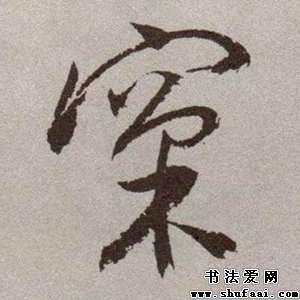 案
书法爱网
www.shufaai.com